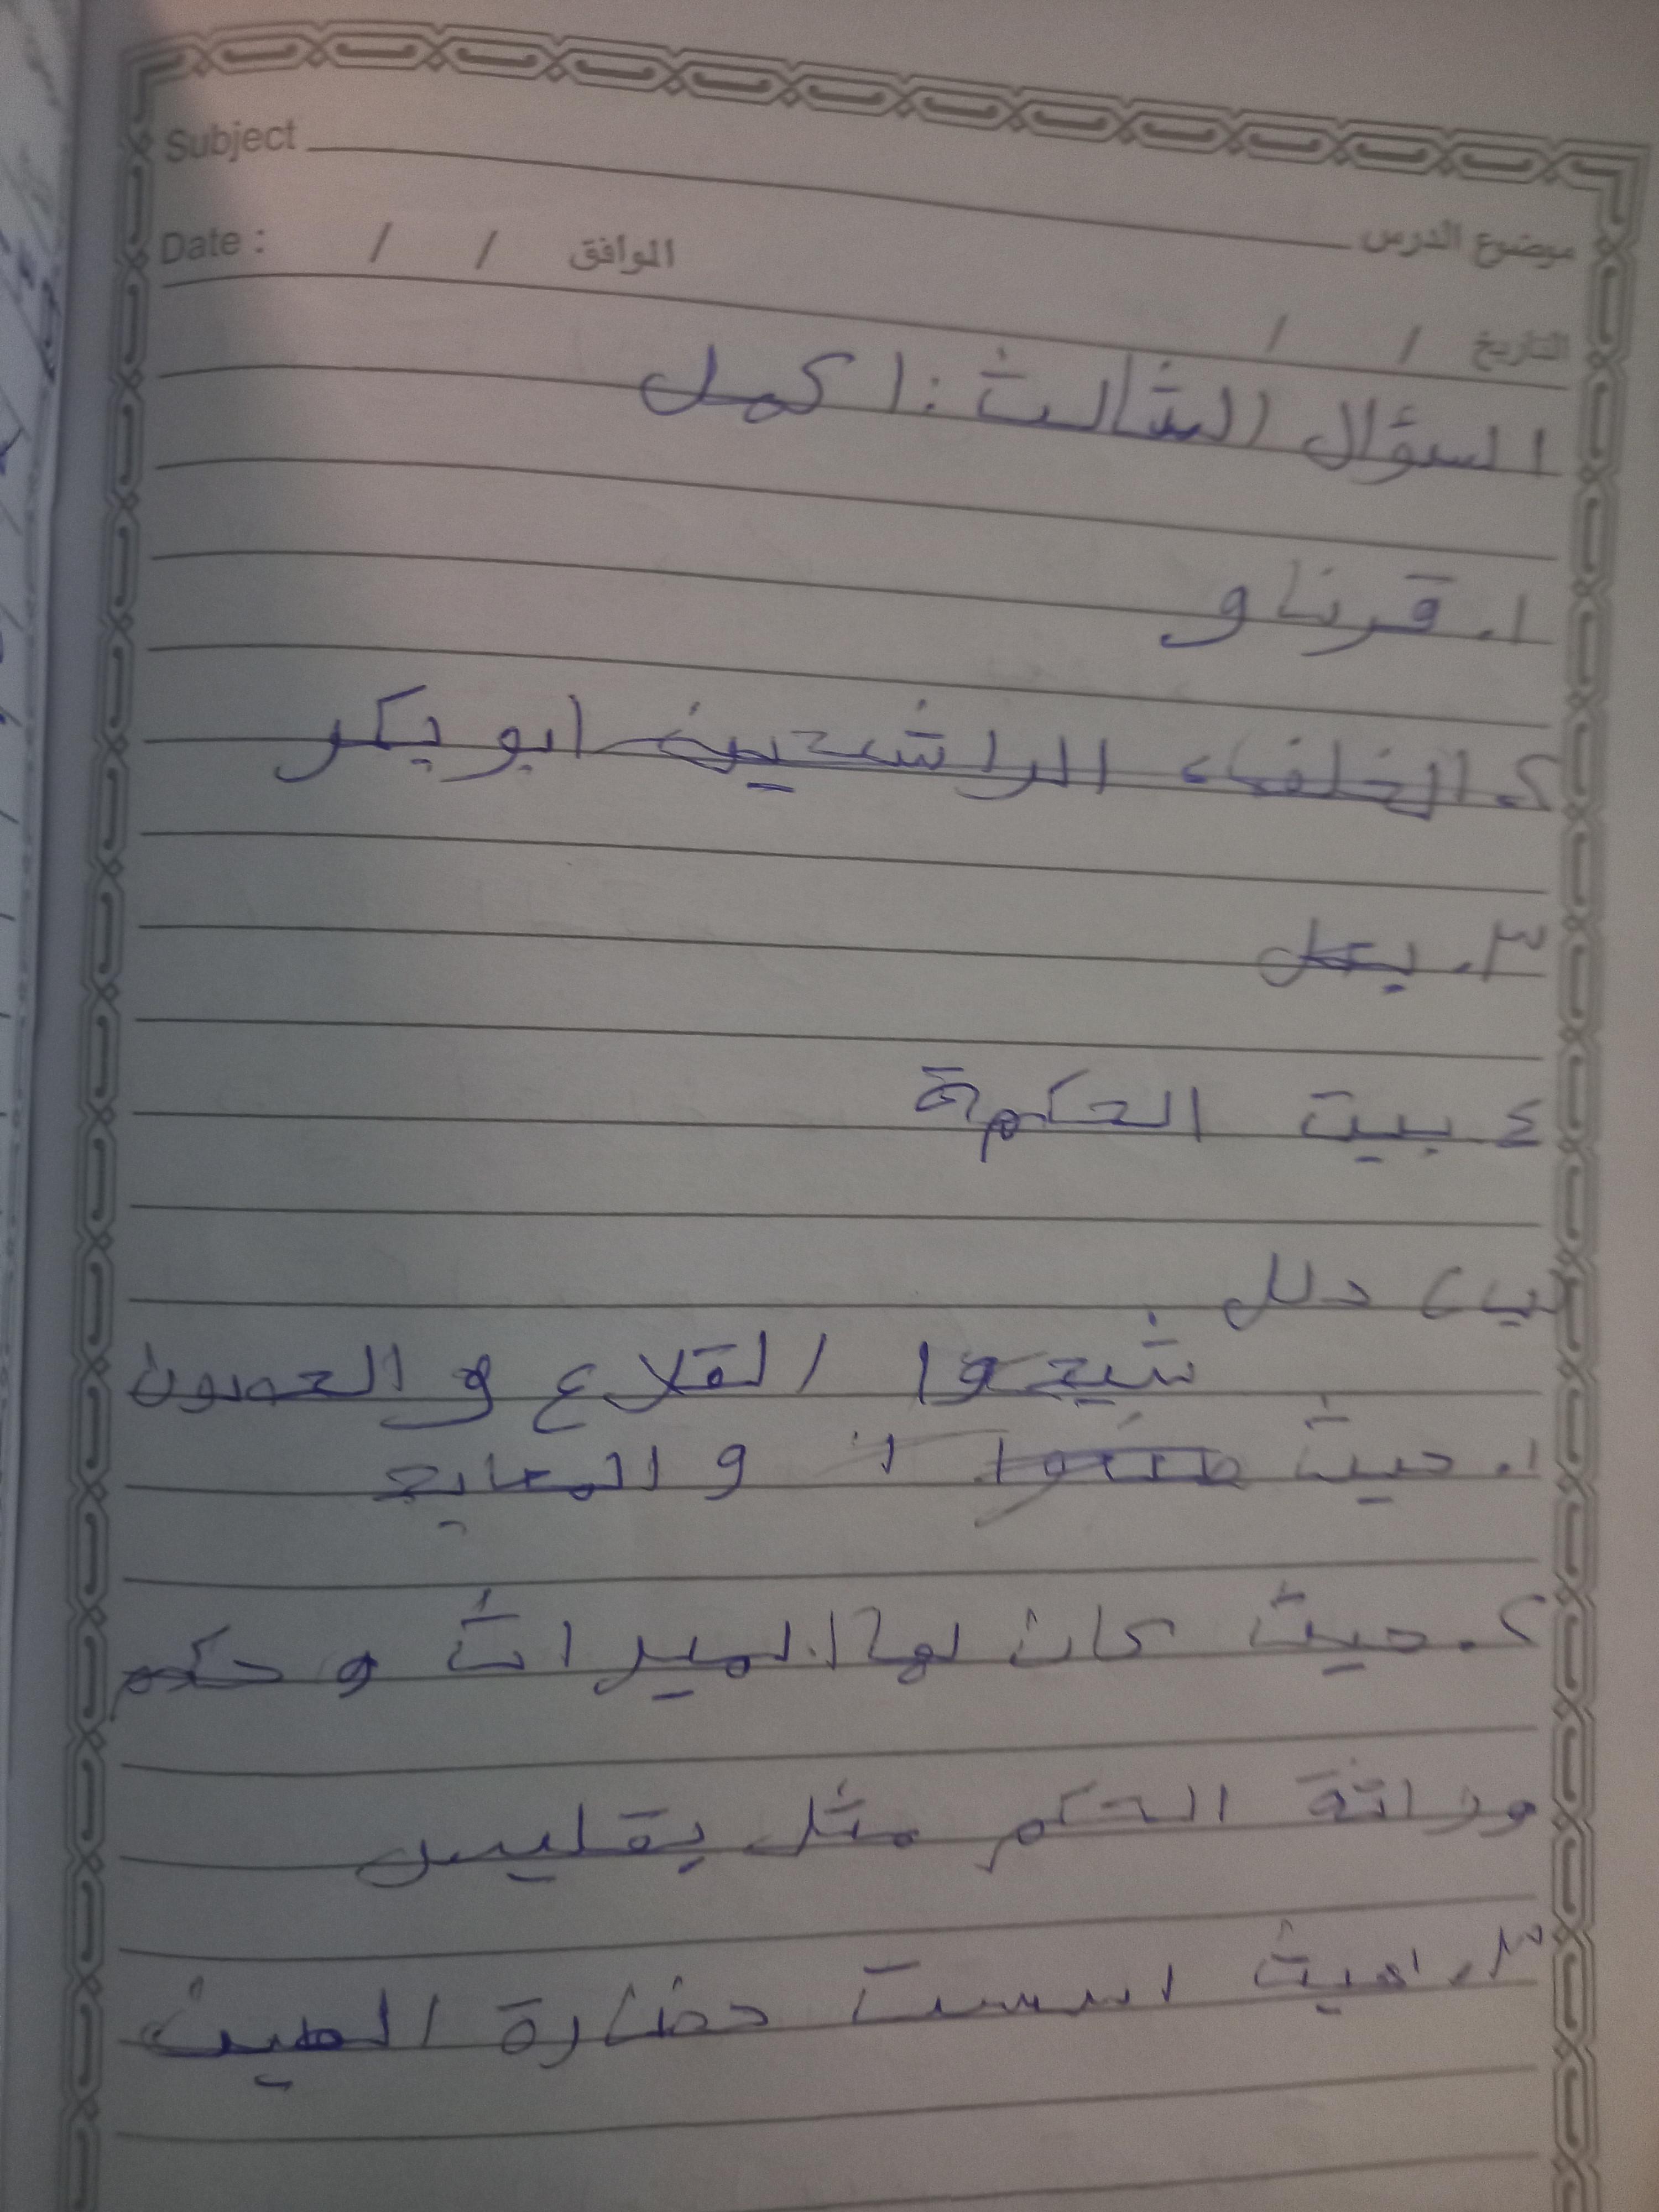 Subject
موضوع الدرس
Date : / / الموافق
التاريخ / /
السؤال الثالث : اكمل
١. قرناو
٢. الخلفاء الراشدين ابو بكر
٣. يعل
٤ بيت الحكمة
ب) دلل
شيدوا القلاع و الحصون
١. حيث و المعابد
٢. حيث كان لها الميراث و حكم
وراثة الحكم مثل بقليس
٣. حيث اسست حضارة الصين